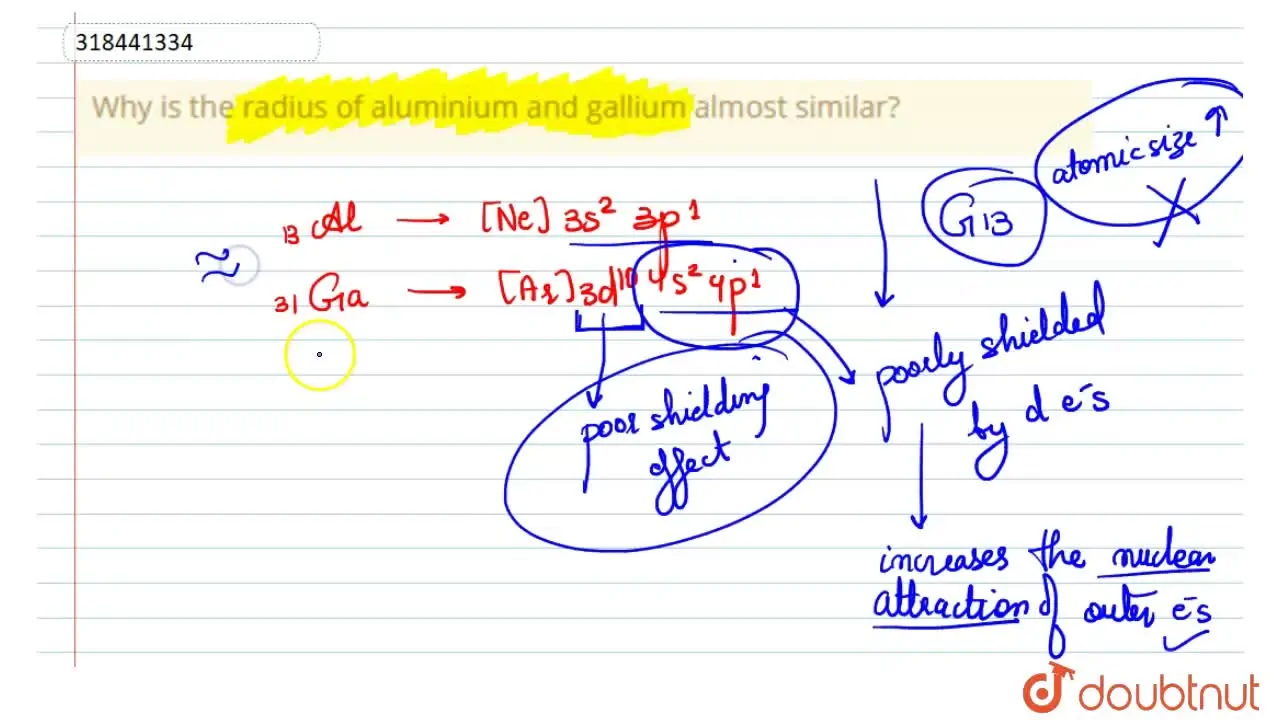 318441334
Why is the radius of aluminium and gallium almost similar?
atomic size ↑
G13
13 Al → [Ne] 3s² 3p¹
≈
31 Ga → [Ar] 3d¹⁰ 4s² 4p¹
poor shielding
effect
poorly shielded
by d e⁻s
increases the nuclear
attraction of outer e⁻s
doubtnut